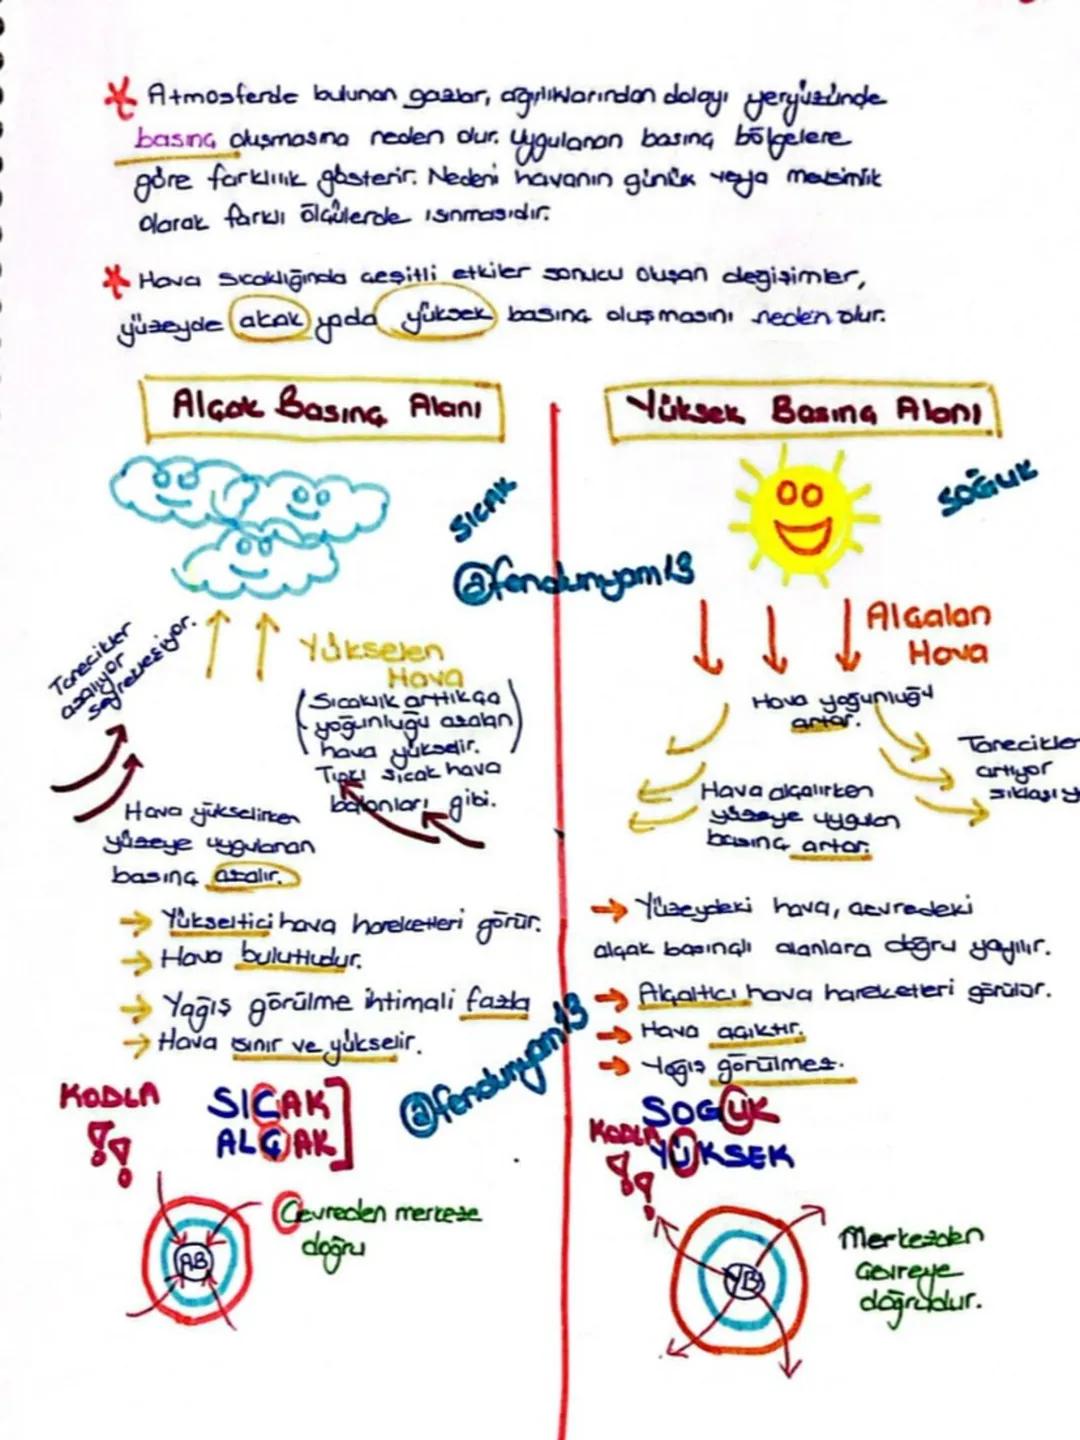 * Atmosferde bulunan gazlar, ağırlıklarından dolayı yeryüzünde
basınç oluşmasına neden olur. Uygulanan basınç bölgelere
göre farklılık gösterir. Nedeni havanın günlük veya mevsimlik
olarak farklı ölçülerde ısınmasıdır.
* Hava sıcaklığında çeşitli etkiler sonucu oluşan değişimler,
yüzeyde alçak yada yüksek basınç oluşmasını neden olur.
Alçak Basınç Alanı
SICAK
@fendunyam13
Tanecikler
azalıyor
seyrekleşiyor.
Yükselen
Hava
(Sıcaklık arttıkça
yoğunluğu azalan
hava yükselir.)
Tıpkı sıcak hava
balonları gibi.
Hava yükselirken
yüzeye uygulanan
basınç azalır.
→ Yükseltici hava hareketleri görür.
→ Hava bulutludur.
→ Yağış görülme ihtimali fazla
→ Hava ısınır ve yükselir.
@fendunyam13
KODLA
!!
SICAK
ALÇAK
AB
Çevreden merkeze
doğru
Yüksek Basınç Alanı
SOĞUK
Alçalan
Hava
Hava yoğunluğu
artar.
Tanecikler
artıyor
sıklaşıy
Hava alçalırken
yüzeye uygulan
basınç artar.
→ Yüzeydeki hava, çevredeki
alçak basınçlı alanlara doğru yayılır.
→ Alçaltıcı hava hareketleri görülür.
→ Hava açıktır.
→ Yağış görülmez.
KODLA
!!
SOĞUK
YÜKSEK
YB
Merkezden
çevreye
doğrudur.